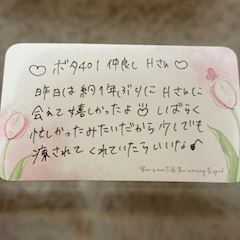 ♡ ボタ401 仲良し Hさん ♡
昨日は約1年ぶりに Hさんに
会えて嬉しかったよ
しばらく
忙しかったみたいだから少しでも
癒されてくれていたらいいな♪